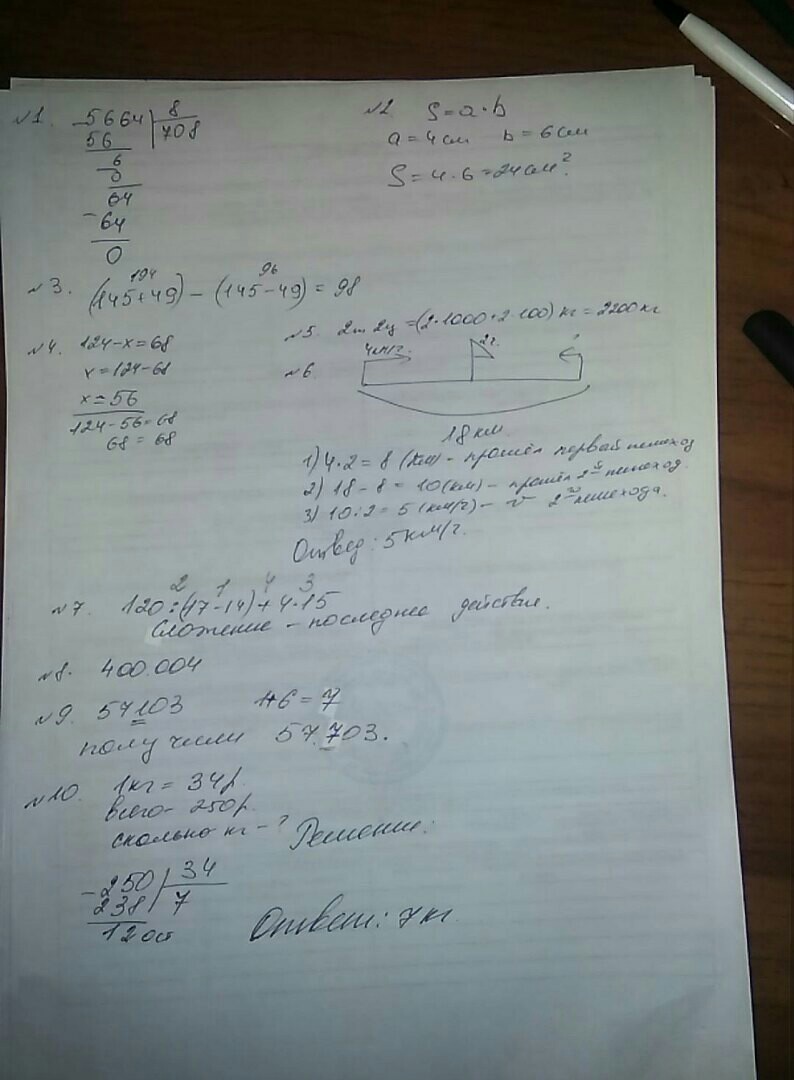 №1. 5664 | 8
56 | 708
6
0
64
64
0
№2 S = a · b
a = 4 см b = 6 см
S = 4 · 6 = 24 см².
194 96
№3. (145+49) − (145−49) = 98
№4. 124 − x = 68
x = 124 − 68
x = 56
124 − 56 = 68
68 = 68
№5. 2т 2ц = (2·1000+2·100) кг = 2200 кг
№6. 4км/ч 2ч. ?
18 км
1) 4·2 = 8 (км) – прошёл первый пешеход
2) 18 − 8 = 10 (км) – прошёл 2й пешеход.
3) 10:2 = 5 (км/ч) – v 2го пешехода.
Ответ: 5 км/ч.
2 1 4 3
№7. 120:(17−14)+4·15
Сложение – последнее действие.
№8. 400.004
№9. 57103 1+6=7
получили 57.703.
№10. 1кг = 34р.
всего – 250р.
сколько кг – ? Решение:
−250 | 34
238 | 7
12 ост
Ответ: 7 кг.